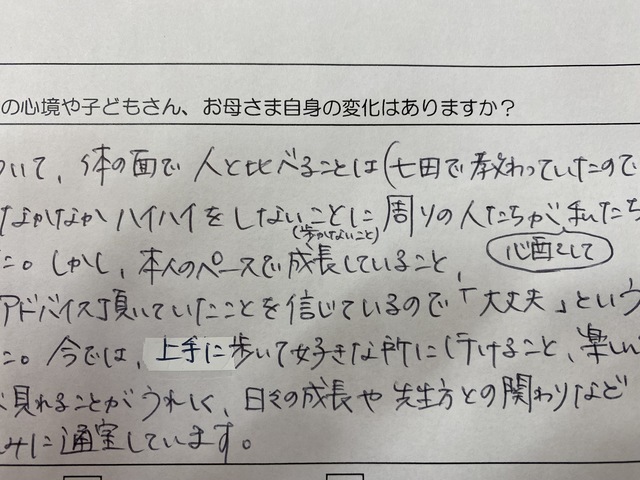 の心境や子どもさん、お母さま自身の変化はありますか?
ついて、体の面で人と比べることは(七田で教わっていたので
なかなかハイハイをしないことに周りの人たちが私たち
(歩かないこと)
心配をして
た。しかし、本人のペースで成長していること、
アドバイス頂いていたことを信じているので「大丈夫」という
た。今では、上手に歩いて好きな所に行けること、楽しい
見れることがうれしく、日々の成長や先生方との関わりなど
みに通室しています。